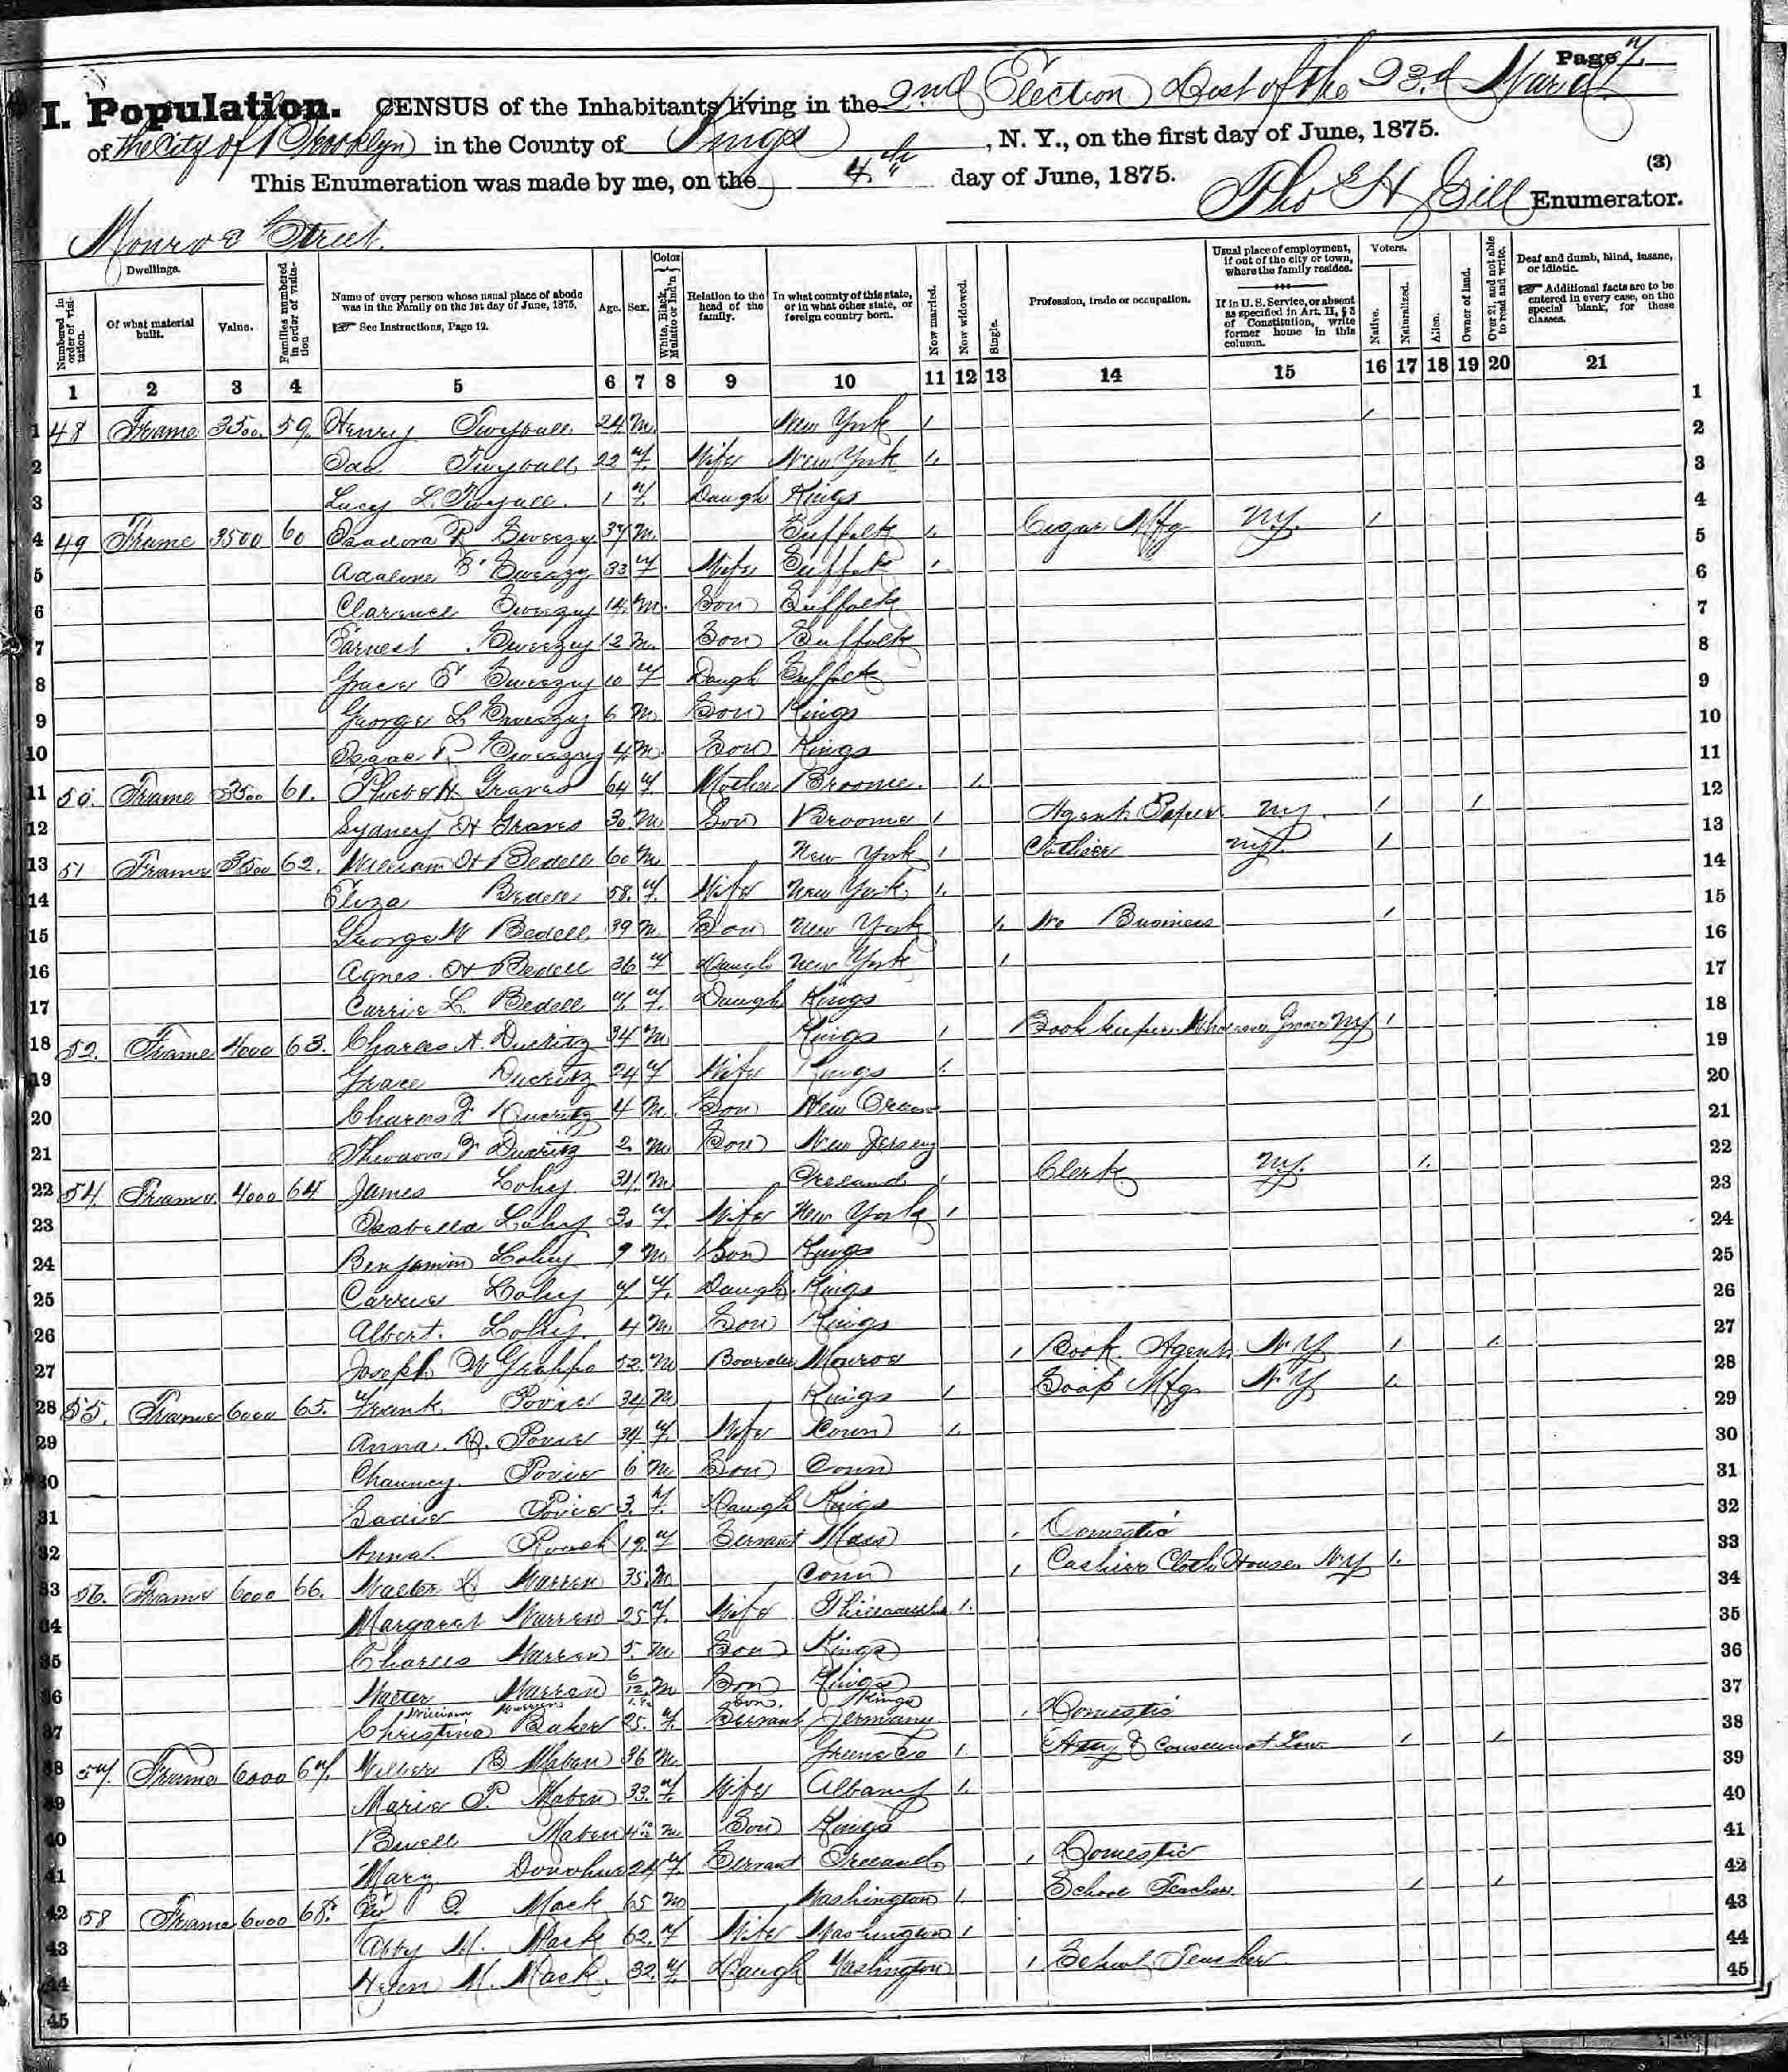 Page 7
I. Population. CENSUS of the Inhabitants living in the 2nd Election Dist of the 23.d Ward
of the City of Brooklyn in the County of Kings, N. Y., on the first day of June, 1875.
This Enumeration was made by me, on the 4th day of June, 1875. Thos H Gill Enumerator.
(3)
Monroe Street.
Dwellings. Color Voters.
Numbered in order of visitation. Of what material built. Value. Families numbered in order of visitation Name of every person whose usual place of abode was in the Family on the 1st day of June, 1875. See Instructions, Page 12. Age. Sex. White, Black, Mulatto or Ind'n Relation to the head of the family. In what county of this state, or in what other state, or foreign country born. Now married. Now widowed. Single. Profession, trade or occupation. Usual place of employment, if out of the city or town, where the family resides. If in U. S. Service, or absent as specified in Art. II, § 3 of Constitution, write former home in this column. Native. Naturalized. Alien. Owner of land. Over 21, and not able to read and write. Deaf and dumb, blind, insane, or idiotic. Additional facts are to be entered in every case, on the special blank, for these classes.
1 2 3 4 5 6 7 8 9 10 11 12 13 14 15 16 17 18 19 20 21
1 48 Frame 3500. 59. Henry 24 M. New York 1 1
2 22 F. Wife New York 1.
3 Lucy L. 1 F. Daugh Kings
4 49 Frame 3500 60 Swezy 37 M. Suffolk 1. Cigar Mfg N.Y. 1
5 Adaline E. Swezy 33 F Wife Suffolk 1.
6 Clarence Swezy 14. M. Son Suffolk
7 Earnest Swezy 12 M. Son Suffolk
8 Grace E Swezy 10 F Daugh Suffolk
9 George L Swezy 6 M. Son Kings
10 Isaac R. Swezy 4 M. Son Kings
11 50. Frame 3500 61. Phebe H. Graves 64 F Mother Broome. 1.
12 Sydney H Graves 30. M Son Broome 1 Agent Paper N.Y. 1 1
13 51 Frame 3500 62. William H Bedell 60 M. New York 1 N.Y. 1
14 Eliza Bedell 58. F. Wife New York 1.
15 George W Bedell 39 M. Son New York 1. No Business 1
16 Agnes. H Bedell 36 F Daugh New York 1
17 Carrie L. Bedell 7 F. Daugh Kings
18 52. Frame 4000 63. Charles A. Ducritz 34 M Kings 1 Bookkeeper N.Y. 1
19 Grace Ducritz 24 F Wife Kings 1.
20 Charles F. Ducritz 4 M. Son New
21 Theodore F Ducritz 2. M Son New Jersey
22 54. Frame. 4000 64 James Lohy 34. M Ireland. 1 Clerk N.Y. 1.
23 Isabella Lohy F. Wife New York 1.
24 Benjamin Lohy 9 M. Son Kings
25 Carrie Lohy 7 F. Daugh. Kings
26 Albert. Lohy. 4 M. Son Kings
27 Joseph W M Boarder Monroe 1 Book Agent. N.Y 1. 1.
28 55. Frame 6000 65. Frank Povie 34 M Kings 1 Soap Mfg. N.Y 1.
29 Anna. H. Povie 34 F. Wife Conn 1.
30 Chauncy. Povie 6 M Son Conn
31 Sadie Povie 3. F. Daugh Kings
32 Anna. 19. F Servant Mass 1 Domestic
33 56. Frame 6000 66. Walter Warren 35. M. Conn 1 Cashier Cloth House. N.Y 1.
34 Margaret Warren 25 F. Wife 1.
35 Charles Warren 5. M Son Kings
36 Walter Warren 6/12. M Son Kings
William Warren Son. Kings
37 Christina Baker 25. F. Servant Germany 1 Domestic
38 57. Frame 6000 67. Wilber B Maben 36 M. Greene Co 1. Atty & Counsel at Law 1 1
39 Marie P. Maben 33. F. Wife Albany 1.
40 Maben M Son Kings
41 Mary Donohue 24 F. Servant Ireland 1 Domestic
42 58 Frame 6000 68. Mack 65 M Washington 1. School Teacher. 1 1
43 Abby M. Mack 62. F Wife Washington 1
44 Helen M. Mack. 32. F. Daugh Washington 1 School Teacher
45